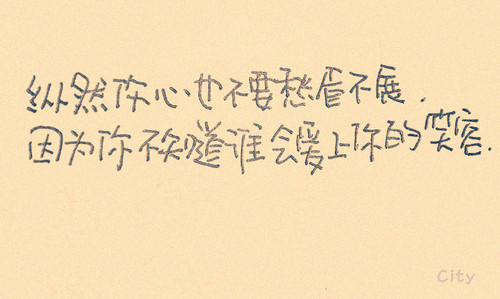 纵然伤心也不要愁眉不展.
因为你不知道谁会爱上你的笑容.
City